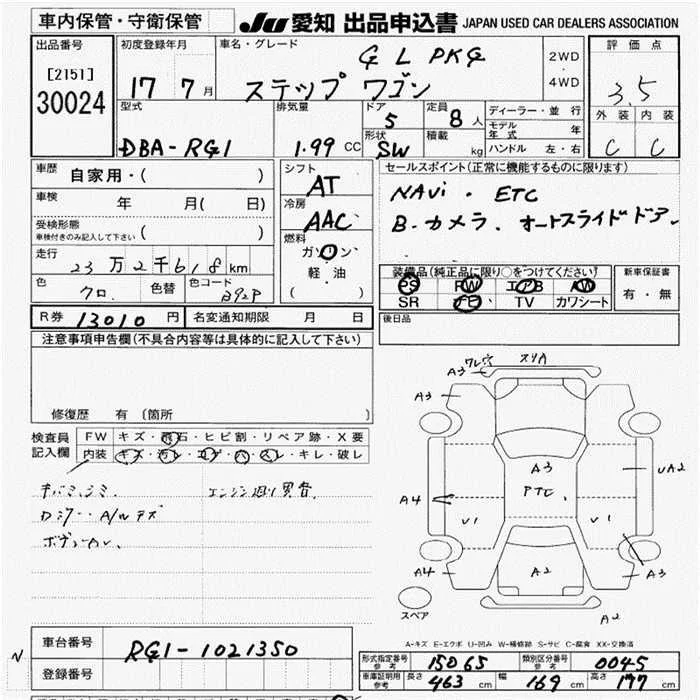 車内保管・守衛保管
JU 愛知 出品申込書 JAPAN USED CAR DEALERS ASSOCIATION
出品番号
[2151]
30024
初度登録年月
17 7月
車名・グレード
G L PKG
ステップ ワゴン
2WD
・
4WD
評価点
3.5
外装 内装
C C
型式
DBA-RG1
排気量
1.99 CC
ドア
5
定員
8人
形状
SW
積載
kg
ディーラー・並行
モデル年式 年
ハンドル 左・右
車歴
自家用・( )
車検 年 月( 日)
受検形態
車検付きのみ記入して下さい ( )
走行
23万2千618km
色 クロ. 色替 色コード B92P
シフト
AT
冷房
AAC
燃料
ガソリン
軽油
( )
セールスポイント(正常に機能するものに限ります)
NAVi ・ ETC
B-カメラ. オートスライドドア
装備品(純正品に限り○をつけてください)
PS PW エアB AW
SR ナビ TV カワシート
新車保証書
有・無
R券 13010 円 名変通知期限 月 日
後日品
注意事項申告欄(不具合内容等は具体的に記入して下さい)
修復歴 有 〔箇所 〕
検査員
記入欄
FW キズ・飛石・ヒビ割・リペア跡・X要
内装 キズ・汚レ・コゲ・穴・スレ・キレ・破レ
エンジン廻り異音.
A/Wキズ
A3 ワレ穴 スリA
A3 A3
A3
UA2
PTC.
A4
V1 V1
A4 A2 A3
スペア
A2
A-キズ E-エクボ U-凹み W-補修跡 S-サビ C-腐食 XX-交換済
車台番号 RG1-1021350
登録番号
N
形式指定番号
参考
15065
類別区分番号
参考
0045
車庫証明用
参考
長さ 463 cm 幅 169 cm 高さ 177 cm